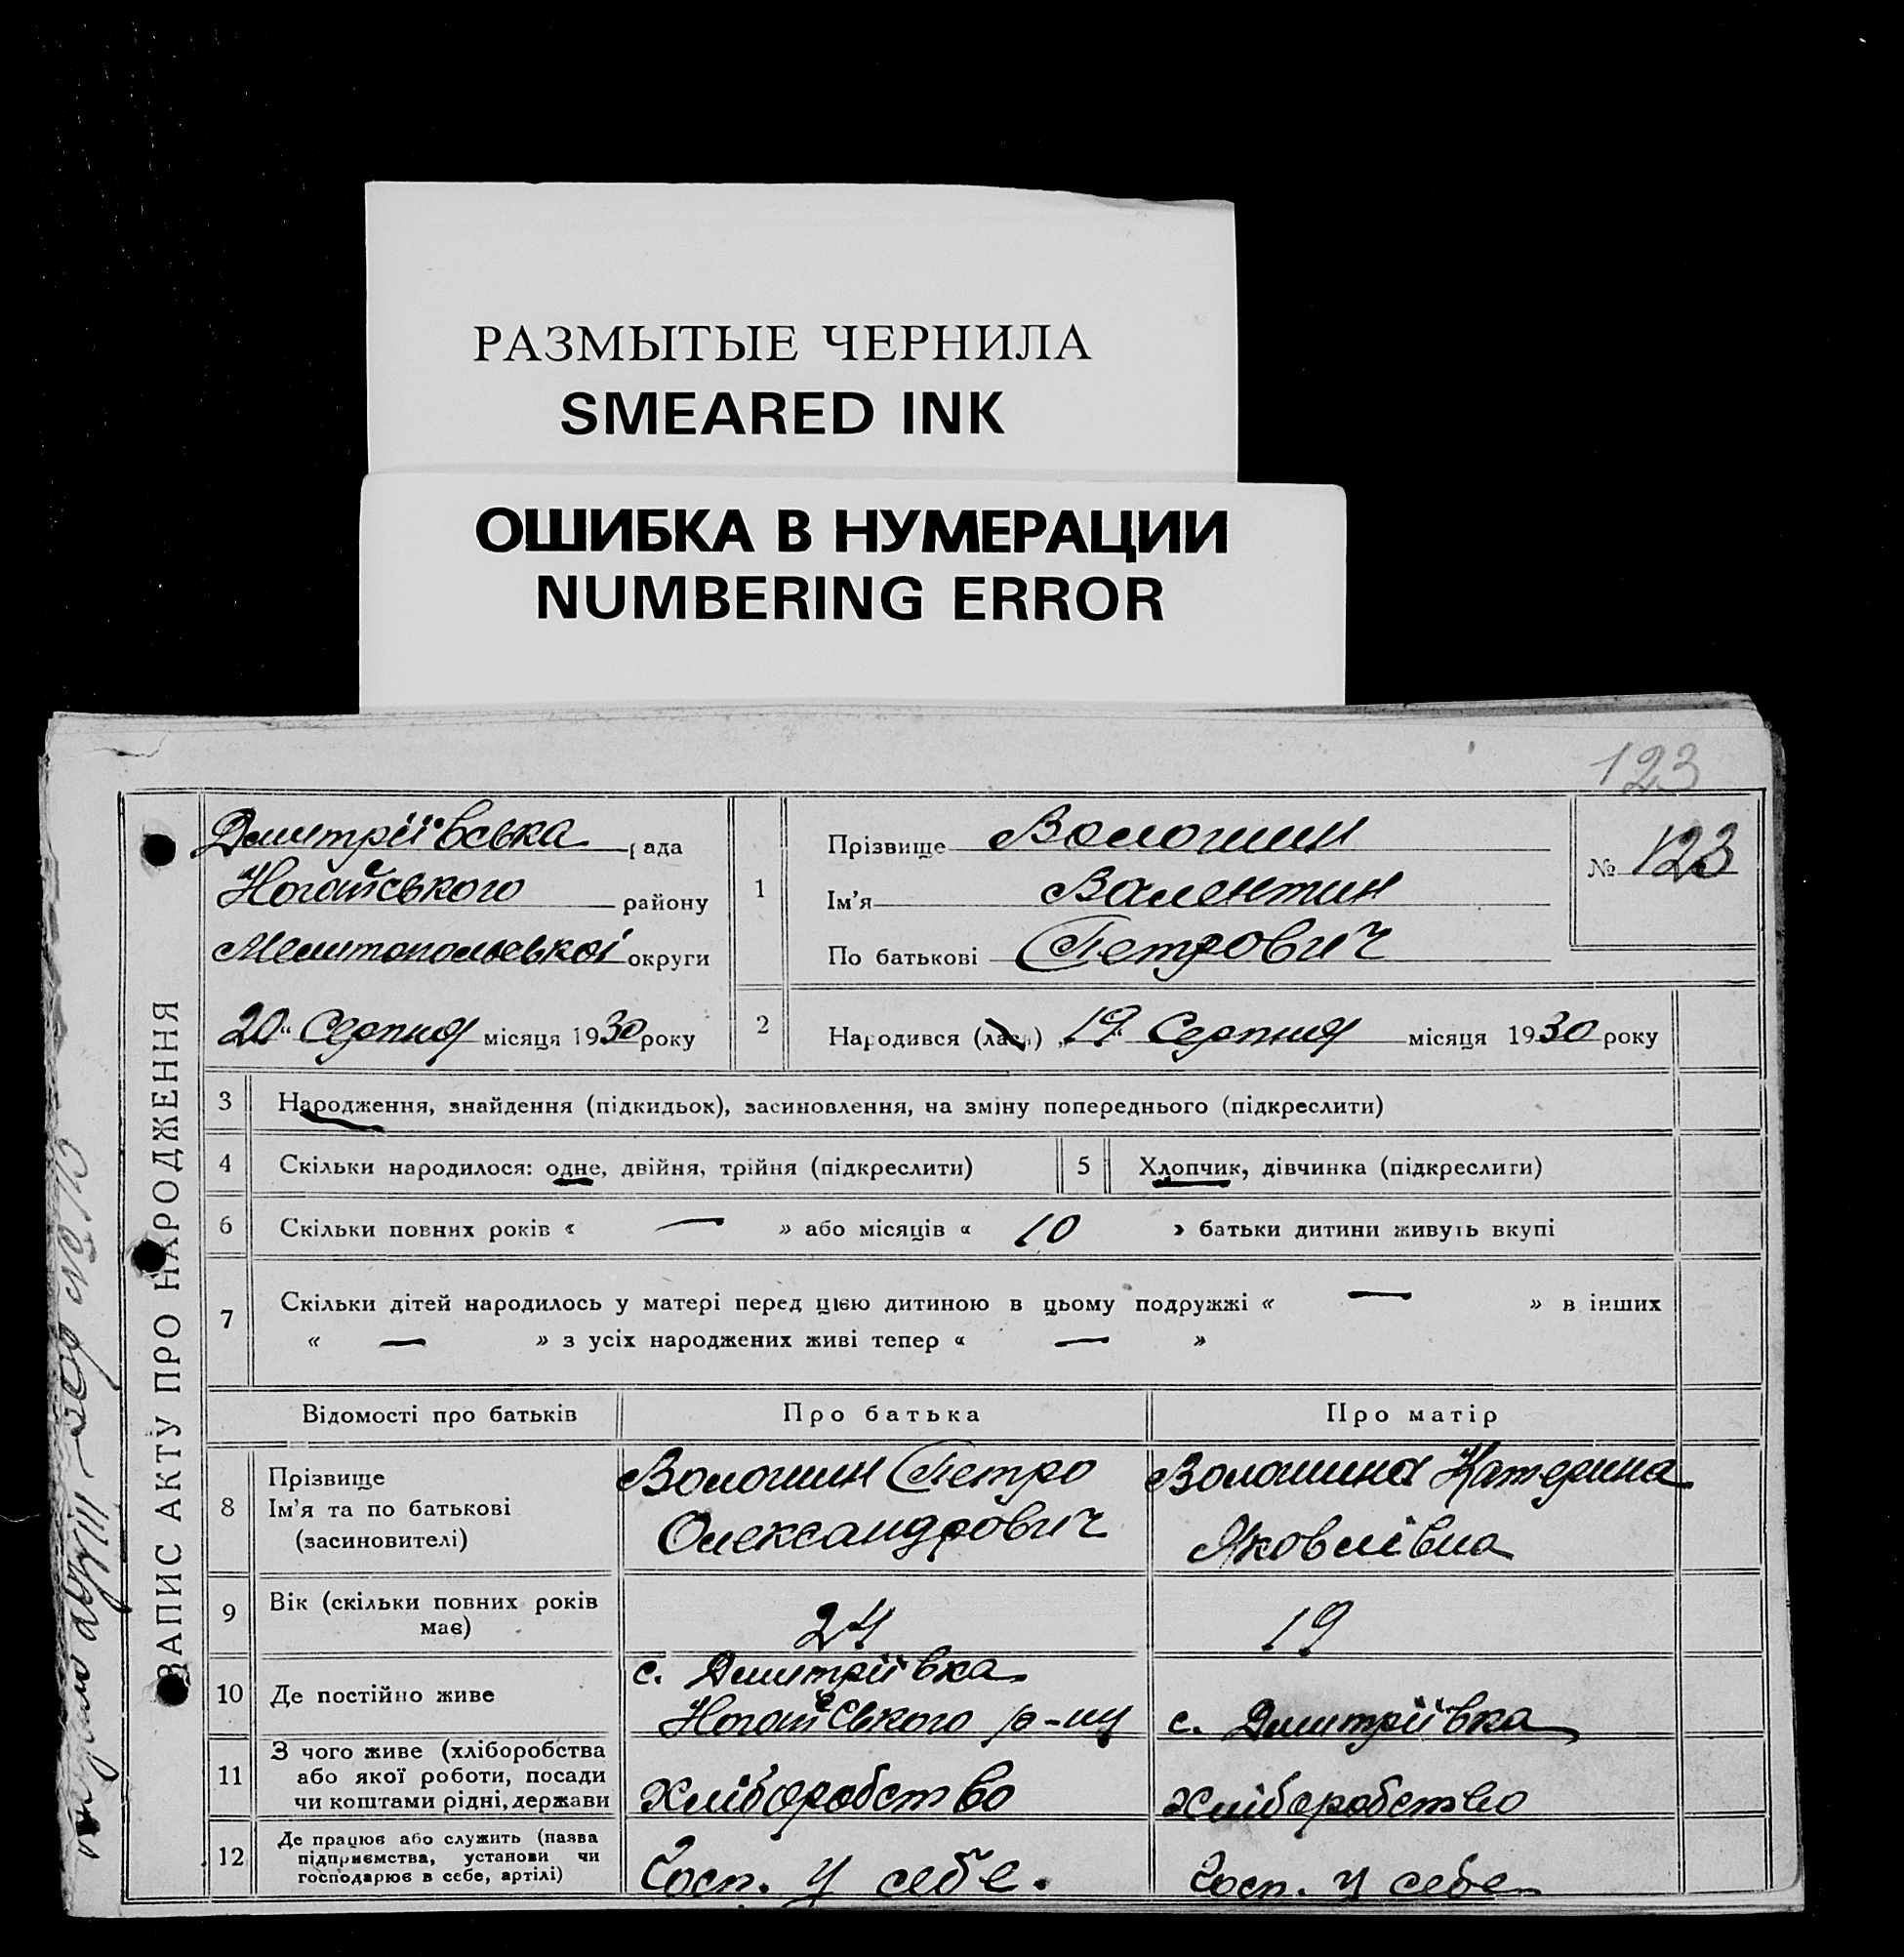 РАЗМЫТЫЕ ЧЕРНИЛА
SMEARED INK
ОШИБКА В НУМЕРАЦИИ
NUMBERING ERROR
123
ЗАПИС АКТУ ПРО НАРОДЖЕННЯ
Дмитріївська рада
Ногайського району
Мелитопольської округи
20 Серпня місяця 1930 року
1
Прізвище Волошин
Ім'я Валентин
По батькові Петрович
№ 123
2 Народився (лась) 19 Серпня місяця 1930 року
3 Народження, знайдення (підкидьок), засиновлення, на зміну попереднього (підкреслити)
4 Скільки народилося: одне, двійня, трійня (підкреслити) 5 Хлопчик, дівчинка (підкреслити)
6 Скільки повних років « — » або місяців « 10 » батьки дитини живуть вкупі
7 Скільки дітей народилось у матері перед цією дитиною в цьому подружжі « — » в інших
« — » з усіх народжених живі тепер « — »
Відомості про батьків Про батька Про матір
8 Прізвище Волошин Петро Волошина Катерина
Ім'я та по батькові Олександрович Яковлівна
(засиновителі)
9 Вік (скільки повних років має) 24 19
10 Де постійно живе с. Дмитріївка
Ногайського р-ну с. Дмитріївка
11 З чого живе (хліборобства
або якої роботи, посади
чи коштами рідні, держави Хліборобство Хліборобство
12 Де працює або служить (назва
підприємства, установи чи
господарює в себе, артілі) Госп. у себе. Госп. у себе